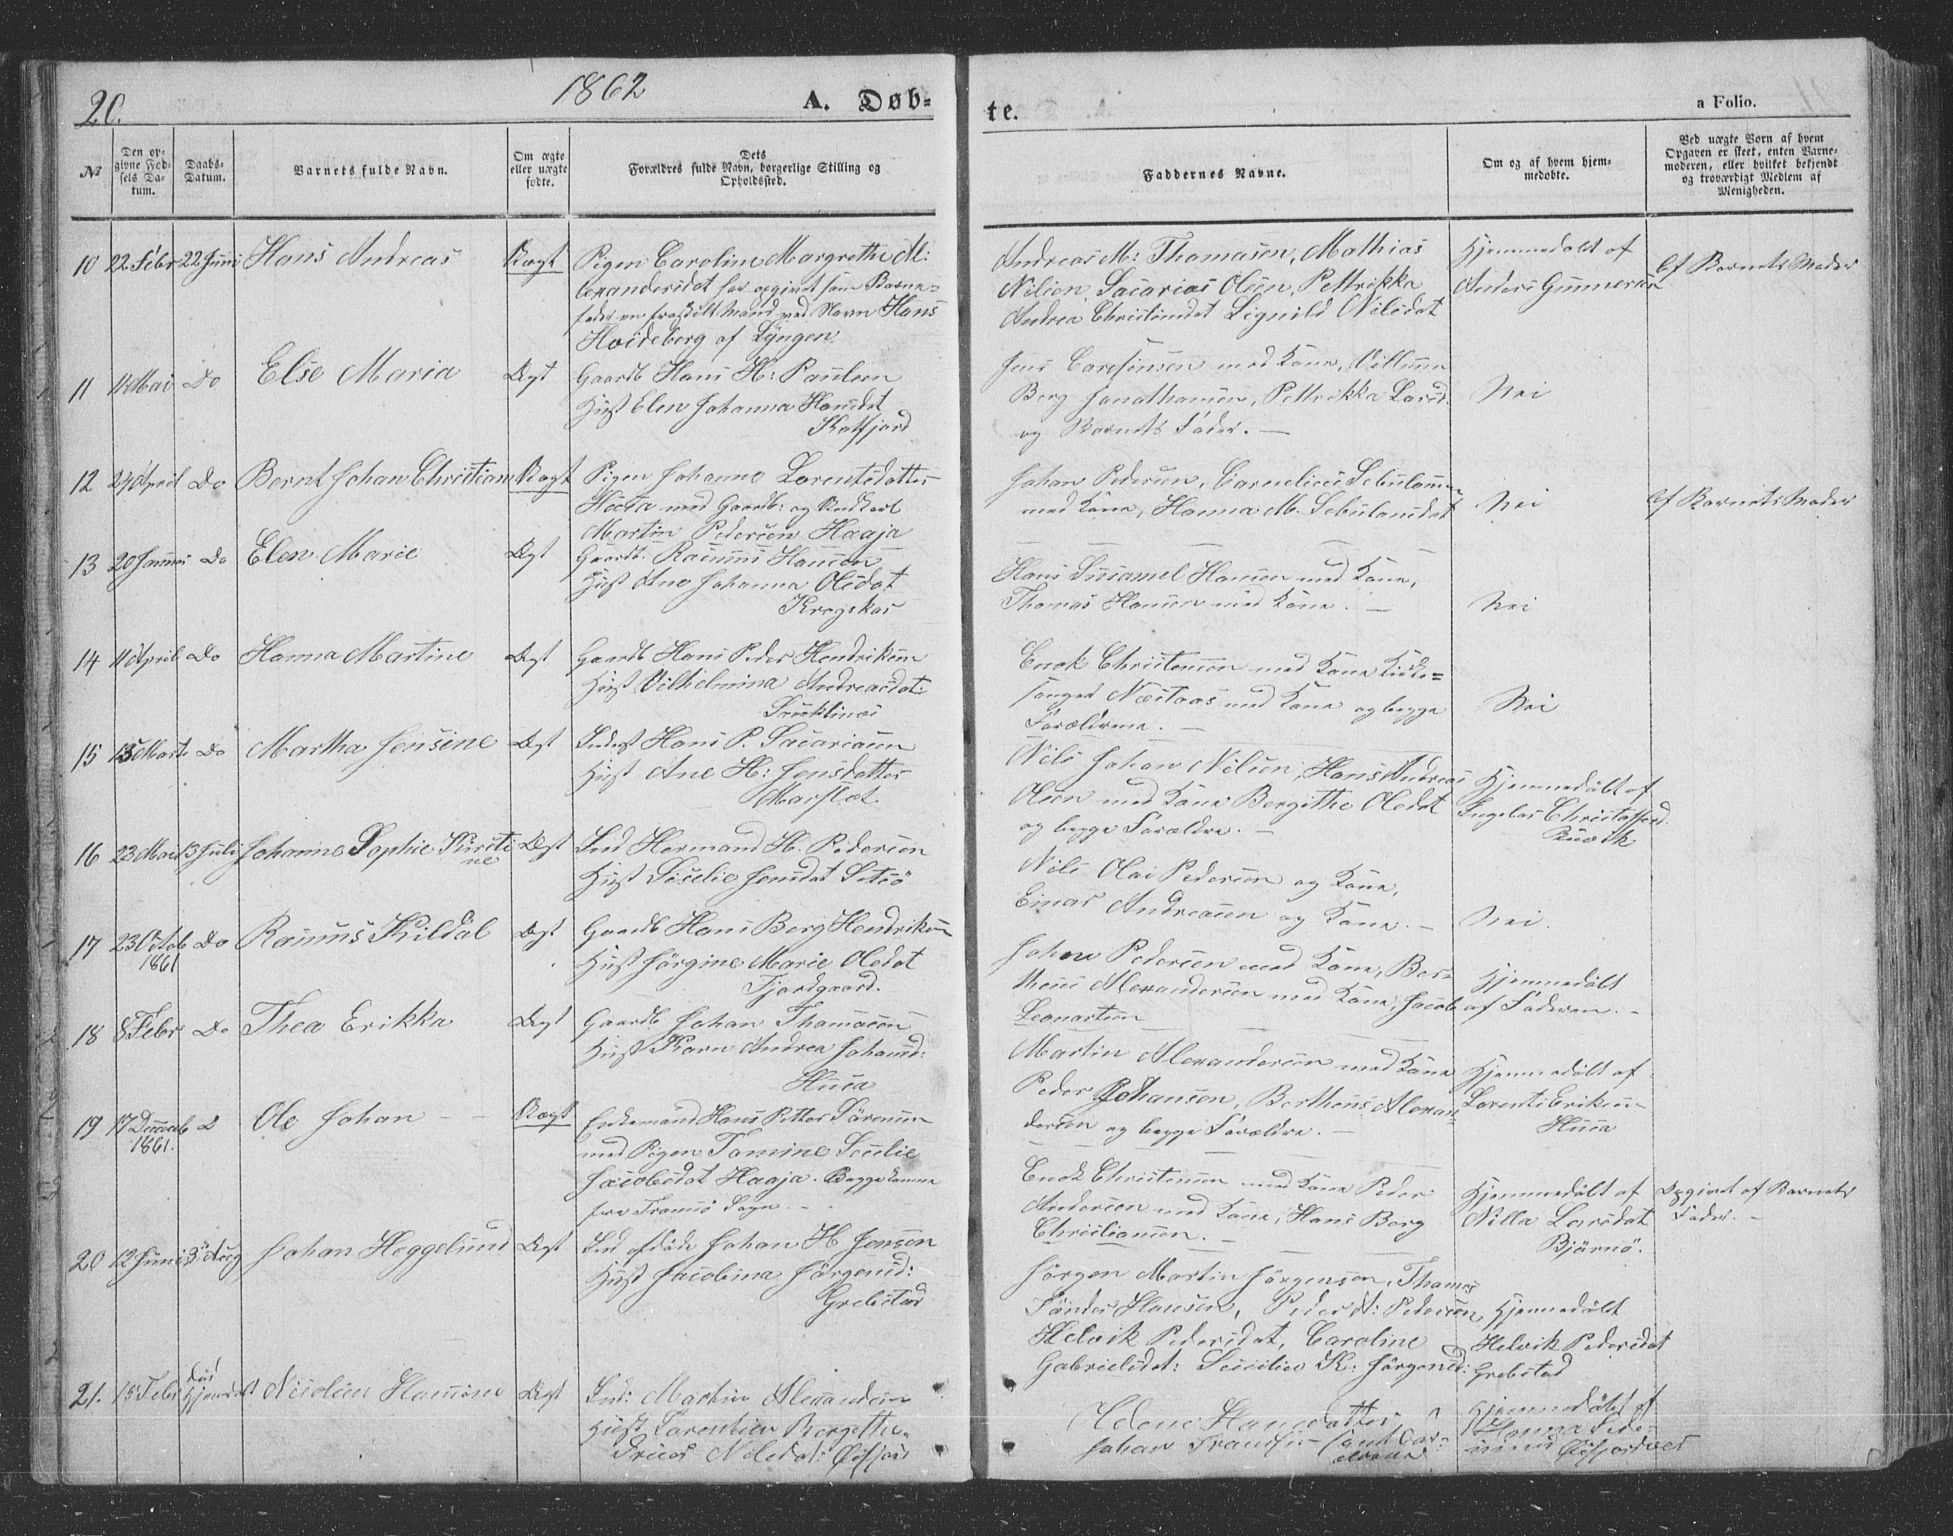 20.
1862
A. Døb-
te.
a Folio.
No
Den op-
givne Fød-
sels Da-
tum.
Daabs-
Datum.
Barnets fulde Navn.
Om ægte
eller uægte
fødte.
Dets
Forældres fulde Navn, borgerlige Stilling og
Opholdssted.
Faddernes Navne.
Om og af hvem hjem-
medøbte.
Ved uægte Børn af hvem
Opgaven er skeet, enten Barne-
moderen, eller hvilket bekjendt
og troværdigt Medlem af
Menigheden.
10 22 Febr 22 Juni Hans Andreas Uægt
Pigen Carolin Margrethe Al:
lexandersdat har opgivet som Barne-
fader en fraskilt Mand ved Navn Hans
Hvideberg af Lyngen
Andreas M: Thomasen, Mathias
Nilsen, Sacarias Olsen, Pettrikka
Andrea Christensdat Signild Nilsdat
Hjemmedøbt af
Anders Gunnersen
Af Barnets Moder
11 11 Mai Do Else Maria Ægt
Gaardb Hans H: Paulsen
Hust Elen Johanna Hansdat
Katfjord
med Kone, Villum
Berg Jonathansen, Pettrikka Larsd.
og Barnets Fader. —
Nei
12 24 April Do Bernt Johan Christian Uægt
Pigen Johanne Lorentsdatter
med Gaardb: og Unkarl
Martin Pedersen Haaja
Johan Pedersen, Cornelius Sebulonsen
med Kone, Hanna M. Sebulonsdat
Nei
Af Barnets Moder
13 20 Januar Do Elen Marie Ægt
Gaardb. Rasmus Hansen
Hust Ane Johanna Olsdat
Krogskar
Hans Susamel Hansen med Kone,
Thomas Hansen med Kone. —
Nei
14 11 April Do Hanna Martine Ægt
Gaardb Hans Peder Hendriksen
Hust Vilhelmina Andreasdat:
Enok Christensen med Kone Kirke-
sanger Næstaas med Kone og begge
Forældrene. —
Nei
15 15 Marts Do Martha Jensine Ægt
Inderst Hans P. Sacariasen
Hust Ane H: Jensdatter
Marslet
Nils Johan Nilsen, Hans Andreas
Olsen med Kone Bergithe Olsdat
og begge Forældre. —
Hjemmedøbt af
Ingelas Christoffers.
16 23 Mai 13 Juli Johanne Sophie Kirsti
ne
Ægt
Ind Hermand H. Pedersen
Hust Sicelie Jensdat
Nils Olai Pedersen og Kone,
Einar Andreasen og Kone. —
Nei.
17 23 Octob Do Rasmus Kildal Ægt
1861
Gaardb Hans Berg Hendriksen
Hust Jørgine Marie Olsdat
Fjordgaard.
Johan Pedersen med Kone, Ber-
theus Alexandersen med Kone, Jacob
Leonartsen
Hjemmedøbt
af Faderen. —
18 8 Febr Do Thea Erikka Ægt
Gaardb Johan Thomasen
Hust Karn Andrea Johansd:
Husa
Martin Alexandersen med Kone
Peder Johansen, Bertheus Alexan-
dersen og begge Forældre. —
Hjemmedøbt af
Lorents Eriksen
Husa
19 17 Decemb D Ole Johan — — Uægt
1861.
Enkemand Hans Petter Sørensen
med Pigen Tomine Sicilie
Jacobsdat Haaja. Begge komne
fra Tromsø Sogn. —
Enok Christensen med Kone Peder
Andersen med Kone, Hans Berg
Christiansen. —
Hjemmedøbt af
Nilla Larsdat
Bjørnø.
Opgivet af Barnets
Fader. —
20 12 Juni 3 Aug Johan Heggelund Ægt
Ind afdøde Johan H Jensen
Hust Jacobina Jørgensd:
Grebstad
Jørgen Martin Jørgensen, Thomas
Tønder Hansen, Peder A: Pedersen
Helvik Pedersdat, Caroline
Gabrielsdat: Sicilie K: Jørgensd:
Hjemmedøbt
Helvik Pedersdat
Grebstad
21. 15 Febr Hjemdøbt Nicolai Hansen Ægt
Ind: Martin Alexandersen
Hust Lorentine Bergethe
Nilsdat: Øifjord
Helene Hansdatter
Johan Fransen samt For-
ældrene
Hjemmedøbt af
Hanna